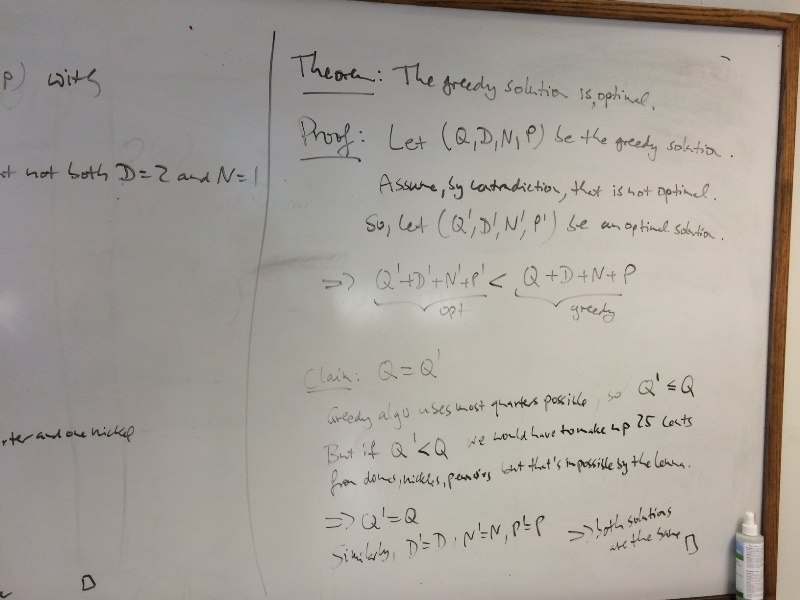 P) with
not both D=2 and N=1
ter and one nickel
□
Theorem: The greedy solution is optimal.
Proof: Let (Q,D,N,P) be the greedy solution.
Assume, by contradiction, that is not optimal.
So, let (Q',D',N',P') be an optimal solution.
=> Q'+D'+N'+P' < Q+D+N+P
opt greedy
Claim: Q = Q'
Greedy algo uses most quarters possible, so Q' ≤ Q
But if Q' < Q we would have to make up 25 cents
from dimes, nickles, pennies but that's impossible by the lemma.
=> Q'=Q
Similarly, D'=D, N'=N, P'=P => both solutions
are the same □